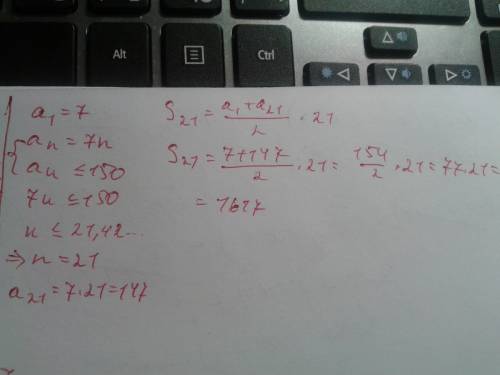 Alt
Ctrl
a₁ = 7
aₙ = 7n
aₙ ≤ 150
7n ≤ 150
n ≤ 21,42...
⇒ n = 21
a₂₁ = 7·21 = 147
S₂₁ = (a₁ + a₂₁)/2 · 21
S₂₁ = (7+147)/2 · 21 = 154/2 · 21 = 77·21 =
= 1617